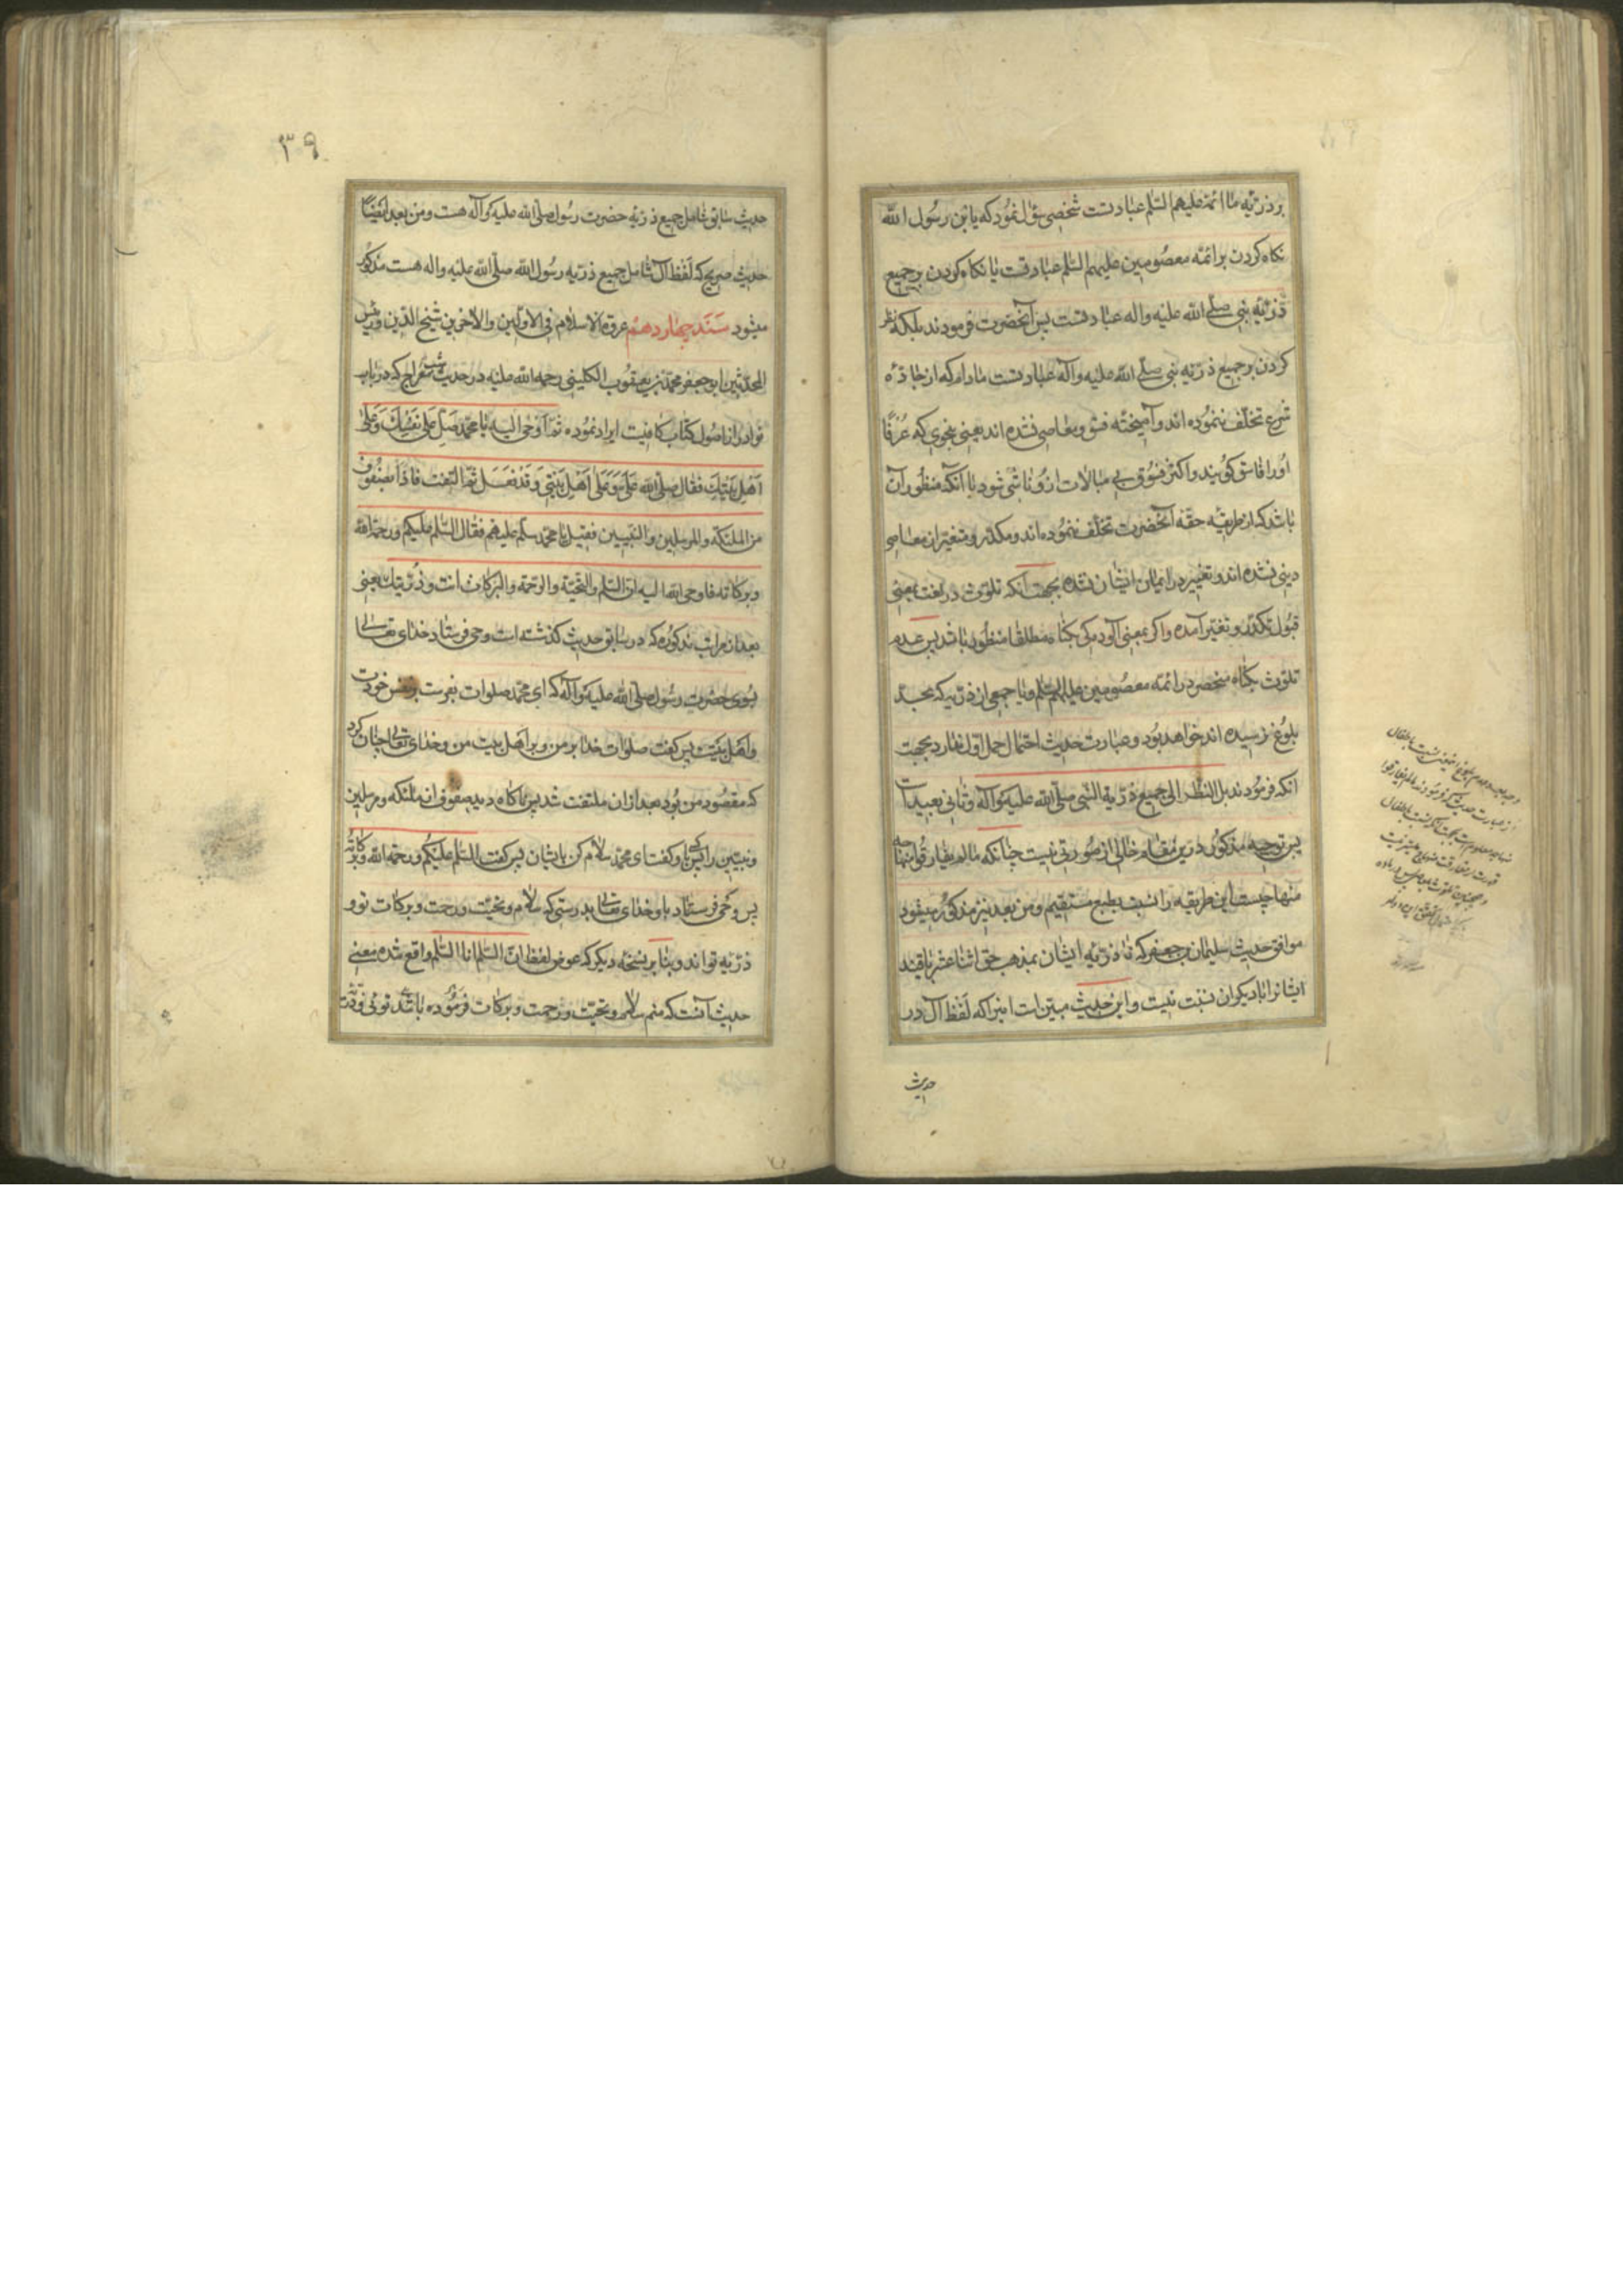 بر ذریّه ما ائمه علیهم السّلم عبادتست شخصی سؤال نمود که یا بن رسول اللّه
نکاه کردن بر ائمّه معصومین علیهم السّلم عبادتست یا نکاه کردن بر جمیع
ذریّه نبی صلّی اللّه علیه واله عبادتست پس آنحضرت فرمودند بلکه نظر
کردن بر جمیع ذریّه نبی صلّی اللّه علیه وآله عبادتست مادام که از جادّه
شرع تخلّف ننموده اند وآمیخته فسق ومعاصی نشده اند یعنی بنحوی که عُرفًا
اورا فاسق کویند واکثر فسوق بی مبالات ازو ناشی شود یا آنکه منظور آن
باشد که از طریقه حقّه آنحضرت تخلّف ننموده اند ومکدّر ومتغیر از معاصی
دینی نشده اند وتغییر در ایمان ایشان نشده بجهت آنکه تلوّث در لغت بمعنی
قبول تکدّر وتغیّر آمده واکر بمعنی آلودکی بکناه مطلقا منظور باشد پس عدم
تلوّث بکناه منحصر در ائمّه معصومین علیهم السّلم ویا جمعی از ذریّه که بحدّ
بلوغ نرسیده اند خواهد بود وعبارت حدیث احتمال حمل اوّل ندارد بجهت
آنکه فرمودند بل النظر الی جمیع ذریة النّبی صلّی اللّه علیه وآله وثانی بعید است
پس توجیه مذکور درین مقام خالی از صورتی نیست چنانکه مالم یفارقوا منهاجه
منهاجیست این طریقه را نسبت بطبع مستقیم ومن بعد نیز مذکور میشود
موافق حدیث سلیمان بن جعفر که تا ذریّه ایشان بمذهب حق اثنا عشر باقیند
ایشانرا با دیکران نسبت نیست واین حدیث مبیّن است اینرا که لفظ آل در
حدیث
۳۹
حدیث سابق شامل جمیع ذریّه حضرت رسول صلّی اللّه علیه وآله هست ومن بعد ایضًا
حدیث صریح که لفظ آل شامل جمیع ذریّه رسول اللّه صلّی اللّه علیه واله هست مذکور
میشود سند چهاردهم عروة الاسلام فی الاوّلین والاخرین شیخ الدّین ورئیس
المحدّثین ابوجعفر محمّد بن یعقوب الکلینی رحمه اللّه علیه در حدیث شب معراج که در باب
نوادر از اصول کتاب کافیست ایراد نموده ثمّ اوحی الیه یا محمّد صلّ علی نفسک وعلی
اهل بیتک فقال صلّی اللّه علیّ وعلی اهل بیتی وقد فعل ثمّ التفت فاذا بصفوف
من الملئکة والمرسلین والنبیین فقیل یا محمّد سلّم علیهم فقال السّلم علیکم ورحمة اللّه
وبرکاته فاوحی اللّه الیه انّ السّلم والتحیّة والرّحمة والبرکات انت وذرّیتک یعنی
بعد از مراتب مذکوره که در سابق حدیث کذشته است وحی فرستاد خدای تعالی
بسوی حضرت رسول صلّی اللّه علیه وآله که ای محمّد صلوات بفرست بر نفس خودت
واهل بیتت پس کفت صلوات خدا بر من وبر اهل بیت من وخدای تعالی چنان کرد
که مقصود من بود بعد ازان ملتفت شد پس ناکاه دید صفوف از ملئکه ومرسلین
ونبیّین را پس باو کفت ای محمّد سلام کن بایشان پس کفت السّلم علیکم ورحمة اللّه وبرکاته
پس وحی فرستاد باو خدای تعالی بدرستی که سلام وتحیّت ورحمت وبرکات تو و
ذریّه تو اند وبنا بر نسخه دیکر که عوض لفظ انّ السّلم انا السّلم واقع شده معنی
حدیث آنست که منم سلام وتحیّت ورحمت وبرکات فرموده باشد توئی وذریّت